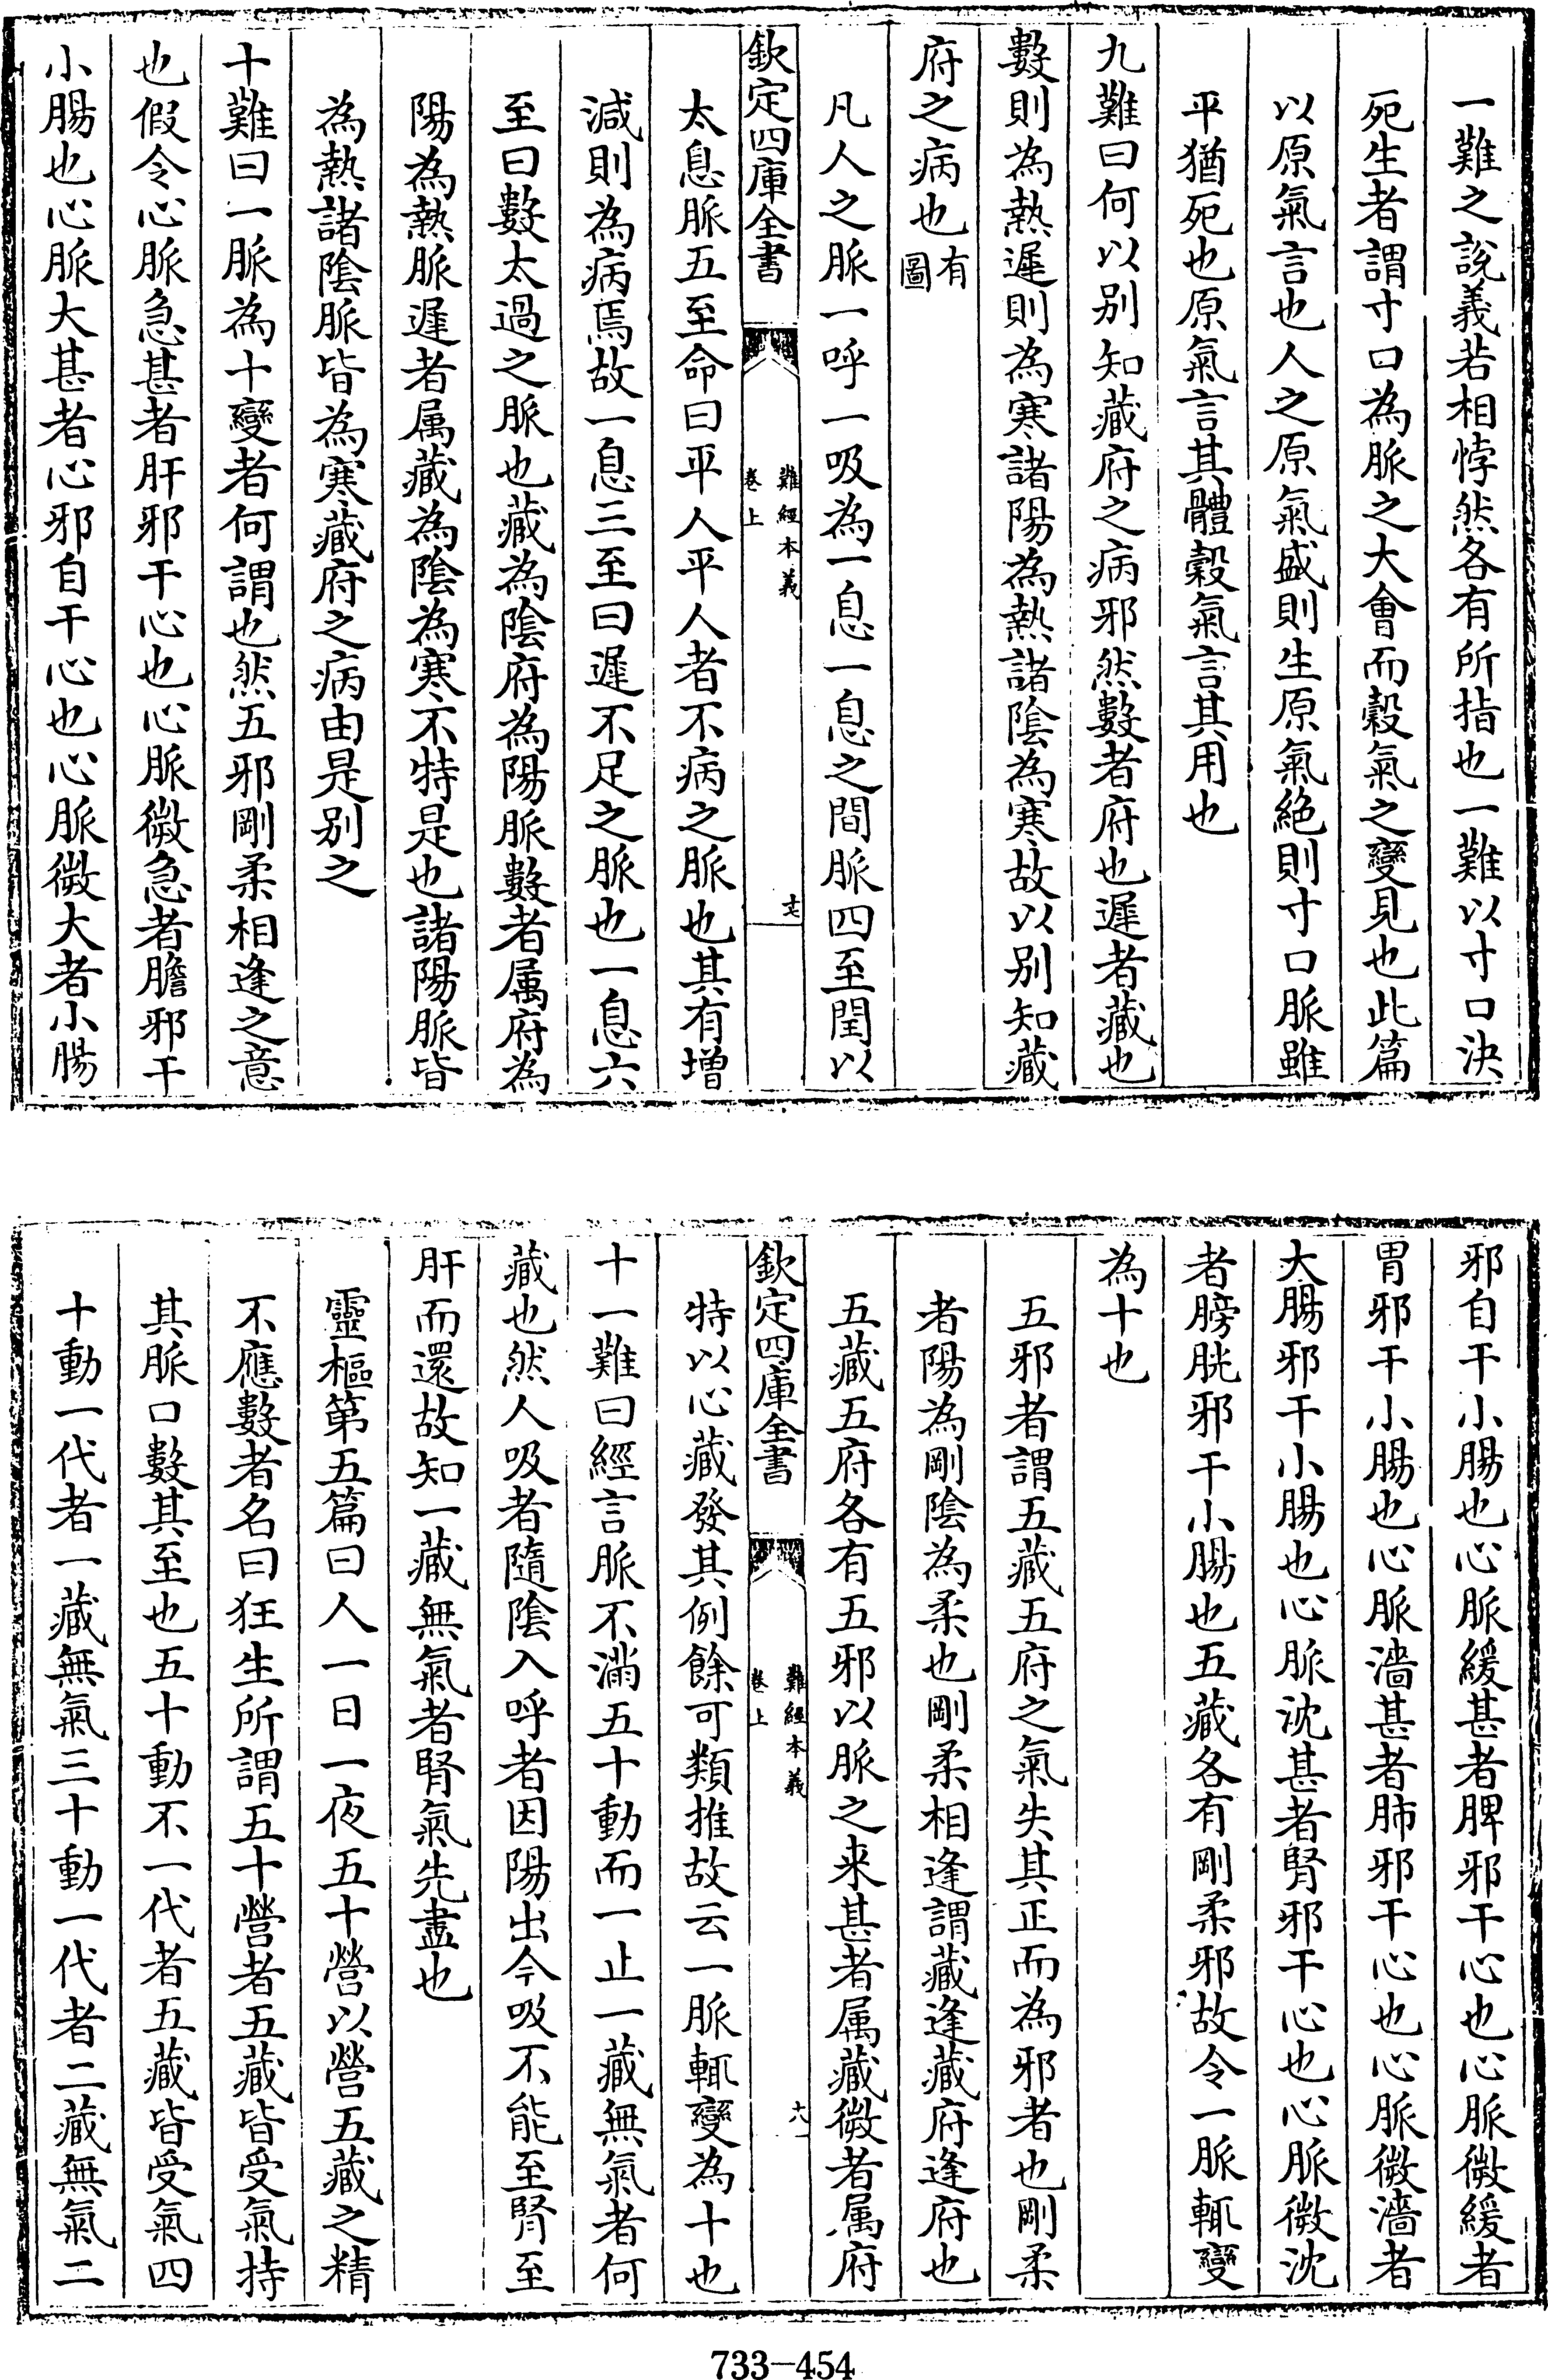 一難之説義若相悖然各有所指也一難以寸口決
死生者謂寸口為脈之大會而穀氣之變見也此篇
以原氣言也人之原氣盛則生原氣絶則寸口脈雖
平猶死也原氣言其體穀氣言其用也
九難曰何以别知藏府之病邪然數者府也遲者藏也
數則為熱遲則為寒諸陽為熱諸陰為寒故以别知藏
府之病也有圖
凡人之脈一呼一吸為一息一息之間脈四至閏以
欽定四庫全書
難經本義
卷上
十七
太息脈五至命曰平人平人者不病之脈也其有增
減則為病焉故一息三至曰遲不足之脈也一息六
至曰數太過之脈也藏為陰府為陽脈數者属府為
陽為熱脈遲者属藏為陰為寒不特是也諸陽脈皆
為熱諸陰脈皆為寒藏府之病由是别之
十難曰一脈為十變者何謂也然五邪剛柔相逢之意
也假令心脈急甚者肝邪干心也心脈微急者膽邪干
小腸也心脈大甚者心邪自干心也心脈微大者小腸
邪自干小腸也心脈緩甚者脾邪干心也心脈微緩者
胃邪干小腸也心脈濇甚者肺邪干心也心脈微濇者
大腸邪干小腸也心脈沈甚者腎邪干心也心脈微沈
者膀胱邪干小腸也五藏各有剛柔邪故令一脈輒變
為十也
五邪者謂五藏五府之氣失其正而為邪者也剛柔
者陽為剛陰為柔也剛柔相逢謂藏逢藏府逢府也
五藏五府各有五邪以脈之来甚者属藏微者属府
欽定四庫全書
難經本義
卷上
十八
特以心藏發其例餘可類推故云一脈輒變為十也
十一難曰經言脈不滿五十動而一止一藏無氣者何
藏也然人吸者隨陰入呼者因陽出今吸不能至腎至
肝而還故知一藏無氣者腎氣先盡也
靈樞第五篇曰人一日一夜五十營以營五藏之精
不應數者名曰狂生所謂五十營者五藏皆受氣持
其脈口數其至也五十動不一代者五藏皆受氣四
十動一代者一藏無氣三十動一代者二藏無氣二
733-454